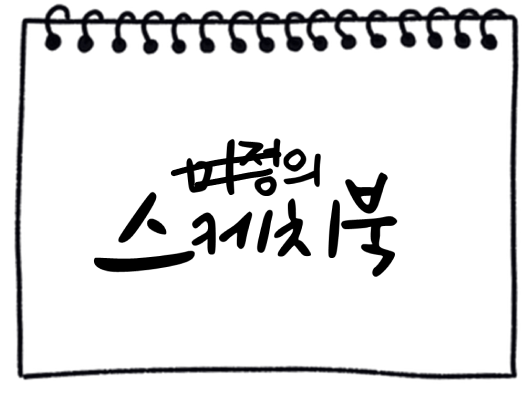 미정의
스케치북